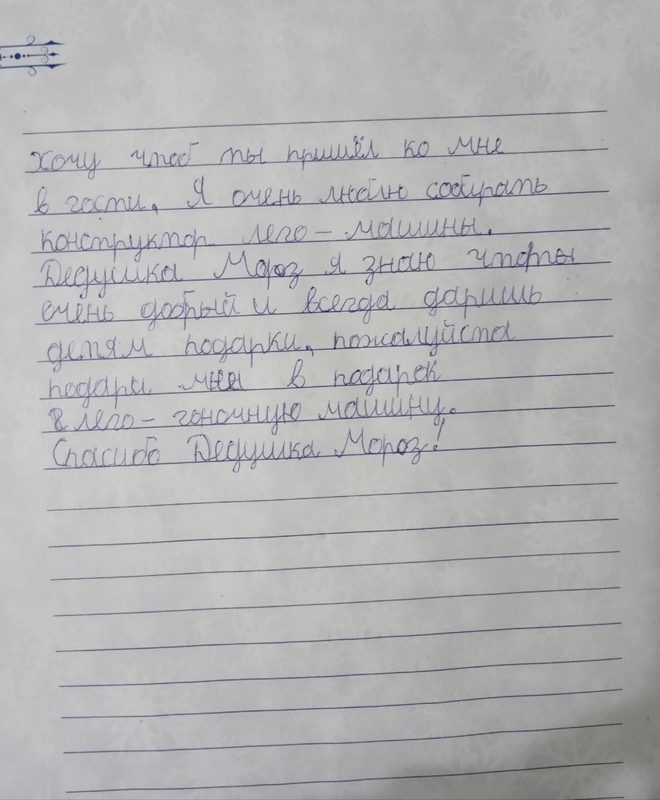 Хочу чтоб ты пришёл ко мне
в гости. Я очень люблю собирать
конструктор лего - машины.
Дедушка Мороз я знаю чтоты
очень добрый и всегда даришь
детям подарки, пожалуйста
подари мне в подарок
в лего - гоночную машину.
Спасибо Дедушка Мороз!